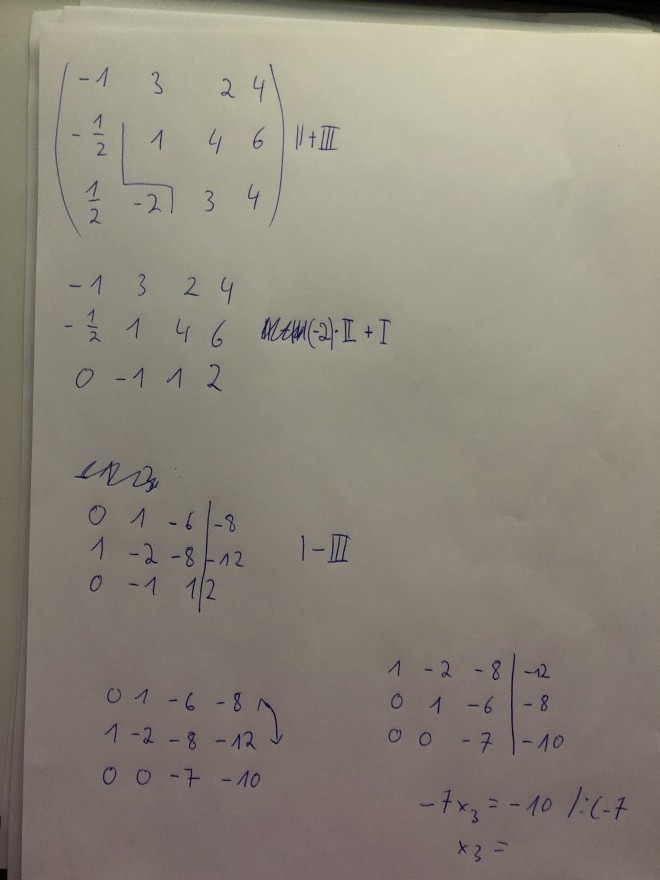 -1 3 2 4
-1/2 1 4 6 II+III
1/2 -2 3 4
-1 3 2 4
-1/2 1 4 6 (-2)·II + I
0 -1 1 2
0 1 -6 | -8
1 -2 -8 | -12 I-III
0 -1 1 | 2
0 1 -6 -8
1 -2 -8 -12
0 0 -7 -10
1 -2 -8 | -12
0 1 -6 | -8
0 0 -7 | -10
-7x₃ = -10 /:(-7
x₃ =